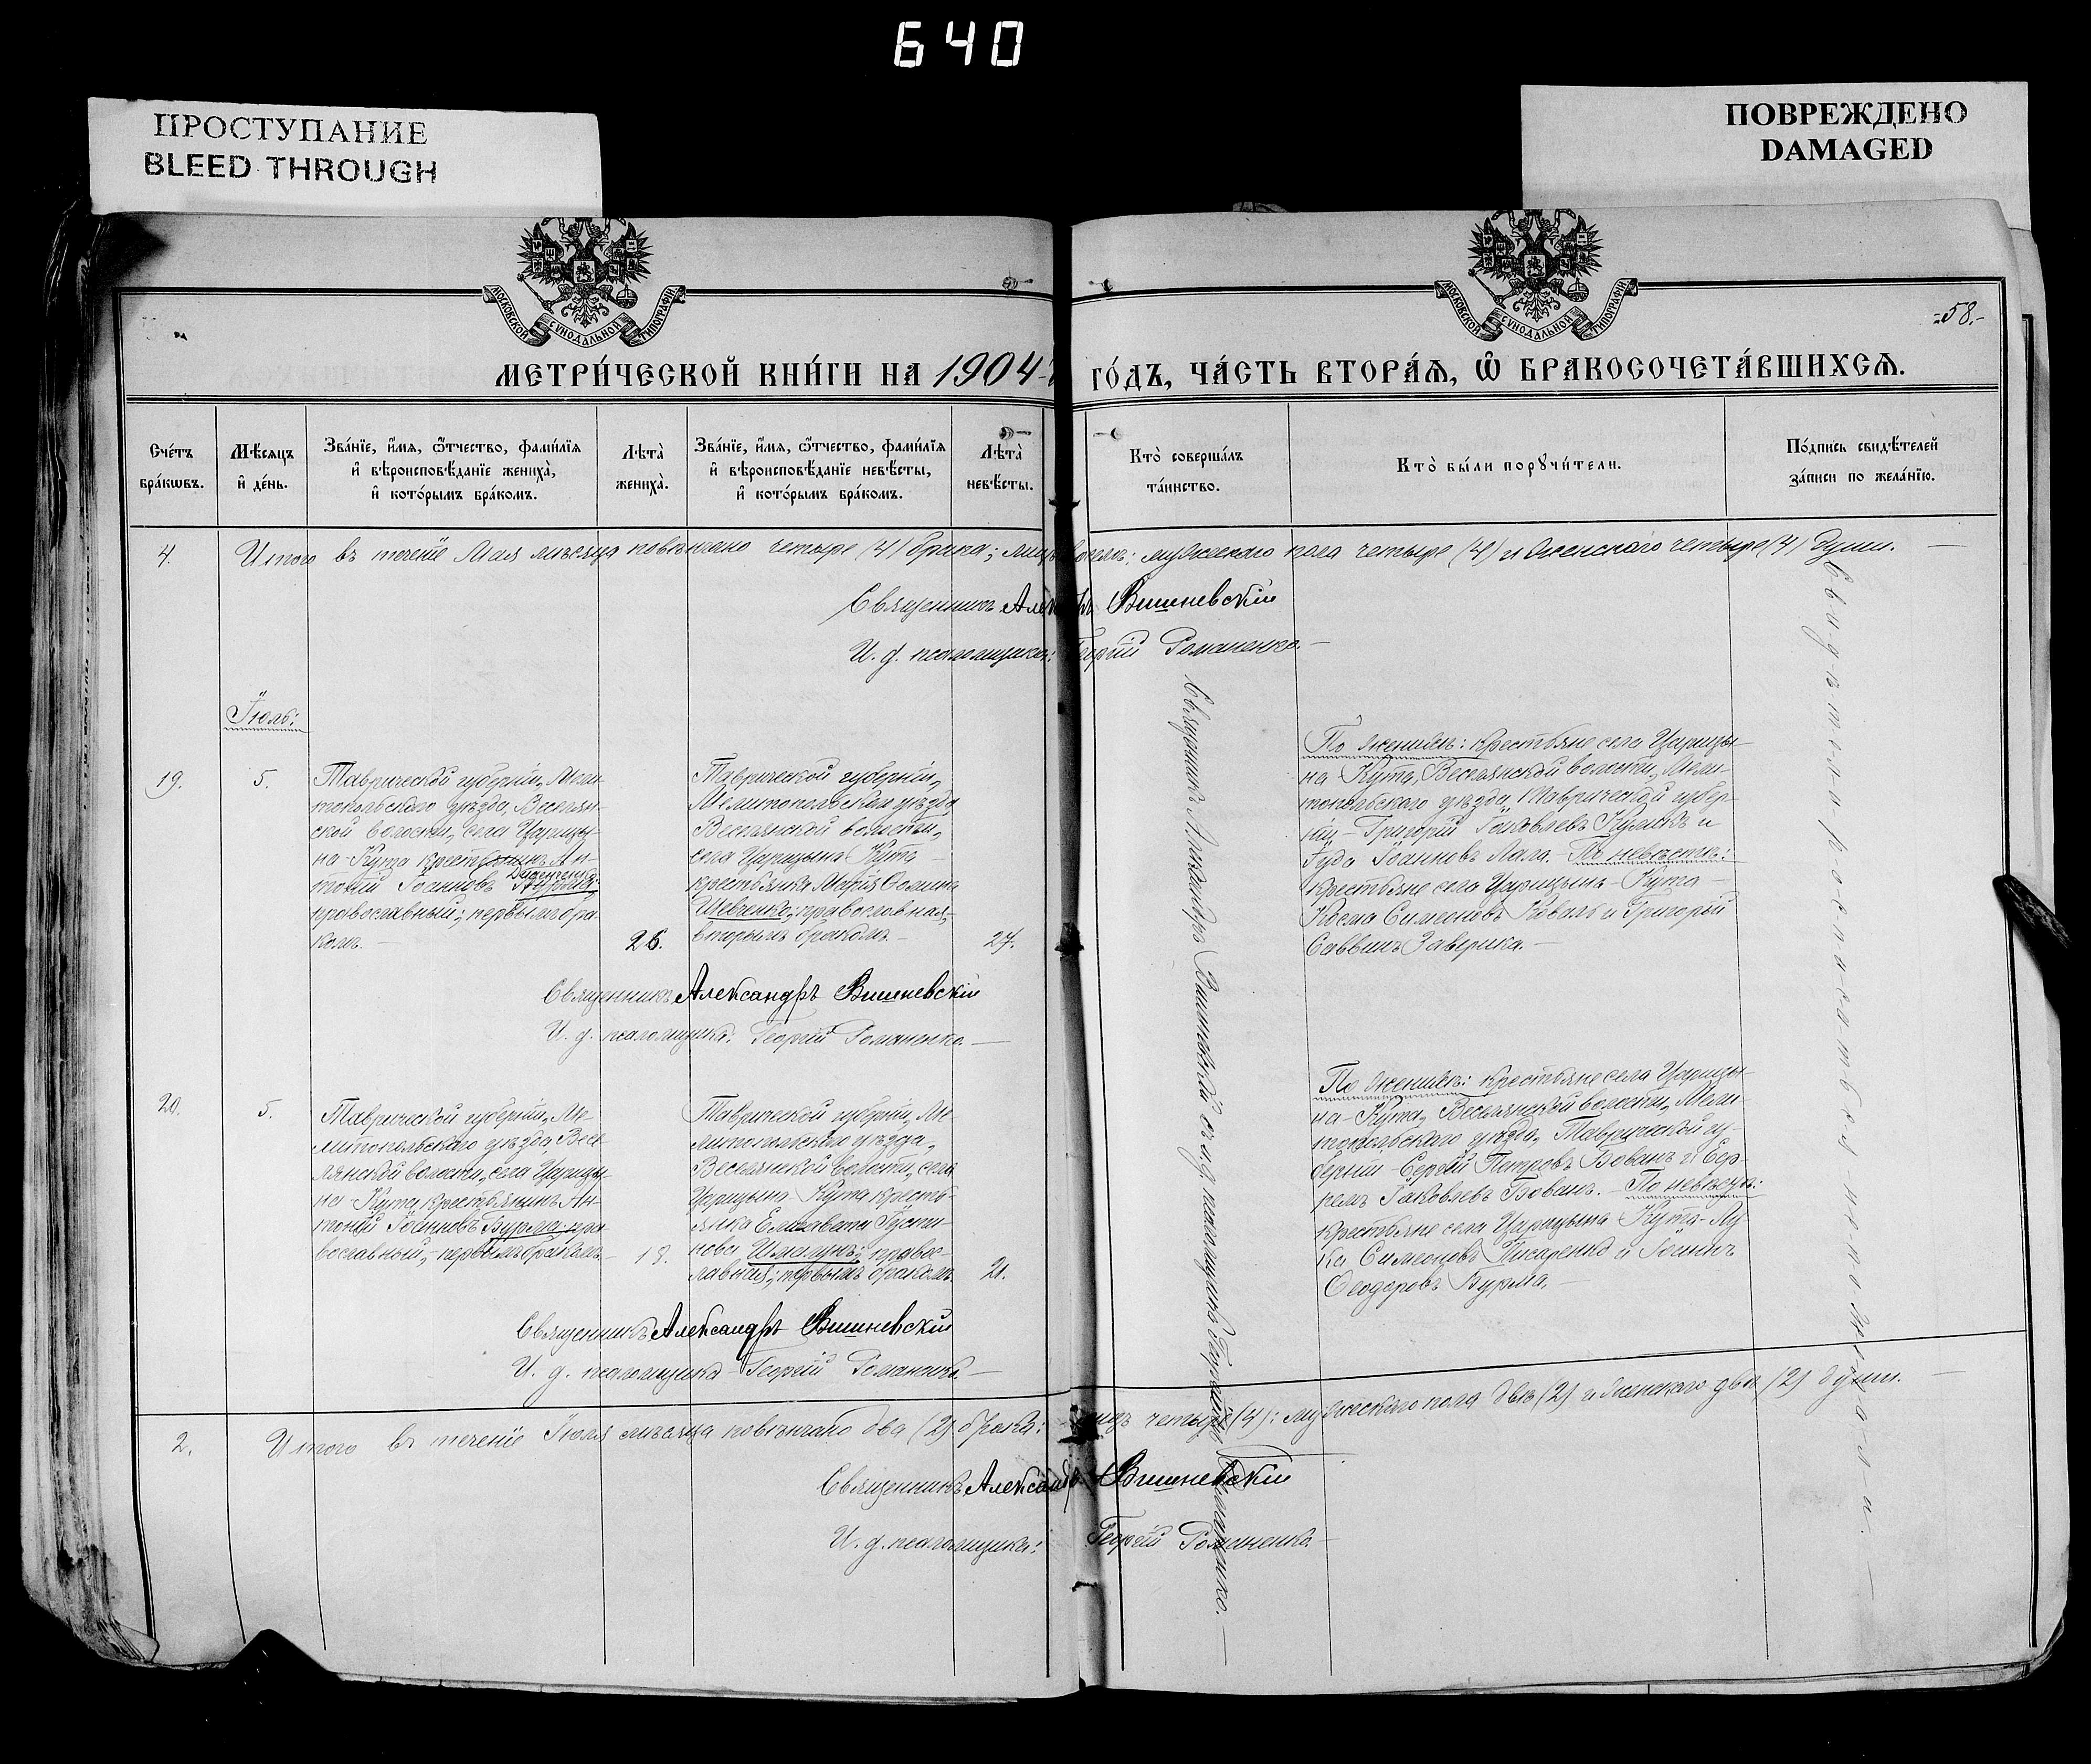 640
ПРОСТУПАНИЕ
BLEED THROUGH
ПОВРЕЖДЕНО
DAMAGED
МОСКОВСКОЙ СѴНОДАЛЬНОЙ ТИПОГРАФІИ
МОСКОВСКОЙ СѴНОДАЛЬНОЙ ТИПОГРАФІИ
58.
МЕТРИ́ЧЕСКОЙ КНИ́ГИ НА 1904 ГО́ДЪ, ЧА́СТЬ ВТОРА́Ѧ, Ѽ БРАКОСОЧЕТА́ВШИХСѦ.
Сче́тъ
бра́кѡвъ.
Мѣ́сяцъ
и҆ де́нь.
Зва́нїе, и҆́мя, ѻ҆́тчество, фами́лїя
и҆ вѣроисповѣ́данїе жениха̀,
и҆ кото́рымъ бра́комъ.
Лѣ́та
жениха̀.
Зва́нїе, и҆́мя, ѻ҆́тчество, фами́лїя
и҆ вѣроисповѣ́данїе невѣ́сты,
и҆ кото́рымъ бра́комъ.
Лѣ́та
невѣ́сты.
Кто̀ соверша́лъ
та́инство.
Кто̀ бы́ли порꙋчи́тели.
По́дпись свидѣ́телей
за́писи по жела́нїю.
4. Итого въ теченіе Мая мѣсяца повѣнчано четыре (4) брака; мужескаго пола четыре (4) и женскаго четыре (4) души.
Священникъ Александръ Вишневскій
И. д. псаломщика: Георгій Романенко.
Іюль:
19.
5.
Таврической губерніи, Мели-
топольскаго уѣзда, Веселян-
ской волости, села Царицы-
на-Кута крестьянинъ Ан-
тоній Іоанновъ
православный; первымъ бра-
комъ.
26.
Таврической губерніи,
Мелитопольскаго уѣзда,
Веселянской волости,
села Царицына Кута
крестьянка Марія
Шевченко; православная,
вторымъ бракомъ.
27.
По женихѣ: крестьяне села Царицы-
на Кута, Веселянской волости, Мели-
топольскаго уѣзда, Таврической губер-
ніи - Григорій Іаковлевъ Куликъ и
Іуда Іоанновъ Лала. По невѣстѣ:
крестьяне села Царицынъ-Кута
Косма Симеоновъ Коваль и Григорій
Саввинъ Заверика.
Священникъ Александръ Вишневскій
И. д. псаломщика: Георгій Романенко.
20.
5.
Таврической губерніи, Ме-
литопольскаго уѣзда, Весе-
лянской волости, села Царицы-
на-Кута, крестьянинъ Ан-
тоній Іоанновъ Бурма; пра-
вославный; первымъ бракомъ.
18.
Таврической губерніи, Ме-
литопольскаго уѣзда,
Веселянской волости, села
Царицына Кута кресть-
янка Елисавета Іусти-
нова правос-
лавная; первымъ бракомъ.
21.
По женихѣ: крестьяне села Царицы-
на-Кута, Веселянской волости, Мели-
топольскаго уѣзда, Таврической гу-
берніи - Сергій Петровъ Бованъ и
Іаковлевъ Бованъ. По невѣстѣ:
крестьяне села Царицына Кута - Лу-
ка Симеоновъ Писаренко и Іоаннъ
Ѳеодоровъ Бурма.
Священникъ Александръ Вишневскій
И. д. псаломщика Георгій Романенко.
Священникъ Александръ Вишневскій съ и. д. псаломщика Георгіемъ Романенко.
Свидѣтели росписаться не пожелали.
2. Итого въ теченіе Іюля мѣсяца повѣнчано два (2) брака: лицъ четыре (4): мужескаго пола двѣ (2) и женскаго двѣ (2) души.
Священникъ Александръ Вишневскій
И. д. псаломщика: Георгій Романенко